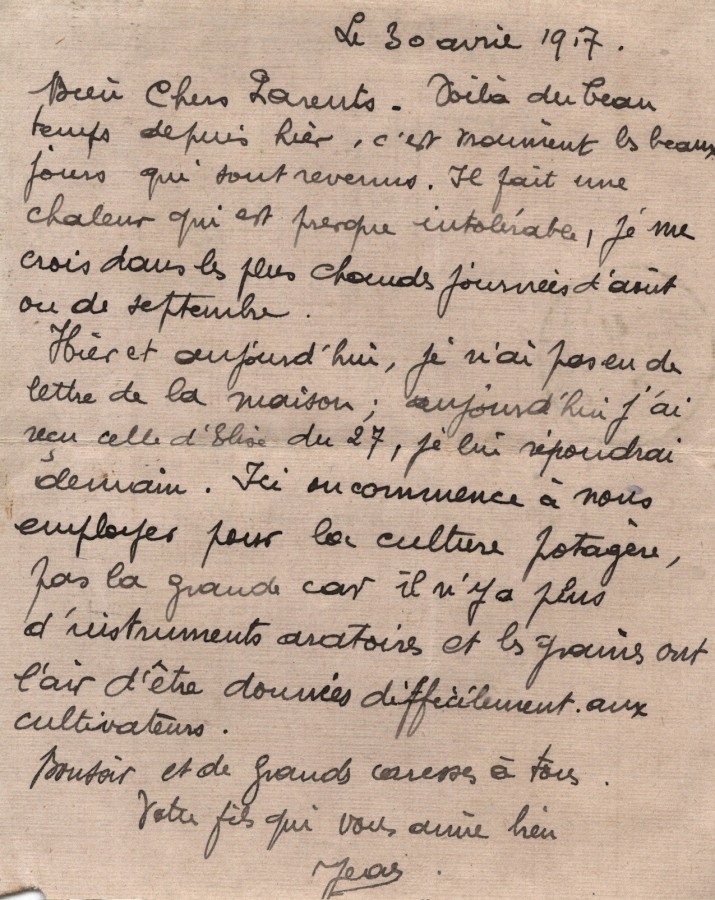 Le 30 avril 1917.
Bien Chers Parents. Voilà du beau
temps depuis hier, c'est vraiment les beaux
jours qui sont revenus. Il fait une
chaleur qui est presque intolérable, je me
crois dans les plus chaudes journées d'août
ou de septembre.
Hier et aujourd'hui, je n'ai pas eu de
lettre de la maison; aujourd'hui j'ai
reçu celle d'Elise du 27, je lui répondrai
demain. Ici on commence à nous
employer pour la culture potagère,
pas la grande car il n'y a plus
d'instruments aratoires et les graines ont
l'air d'être données difficilement aux
cultivateurs.
Bonsoir et de grands caresses à tous.
Votre fils qui vous aime bien